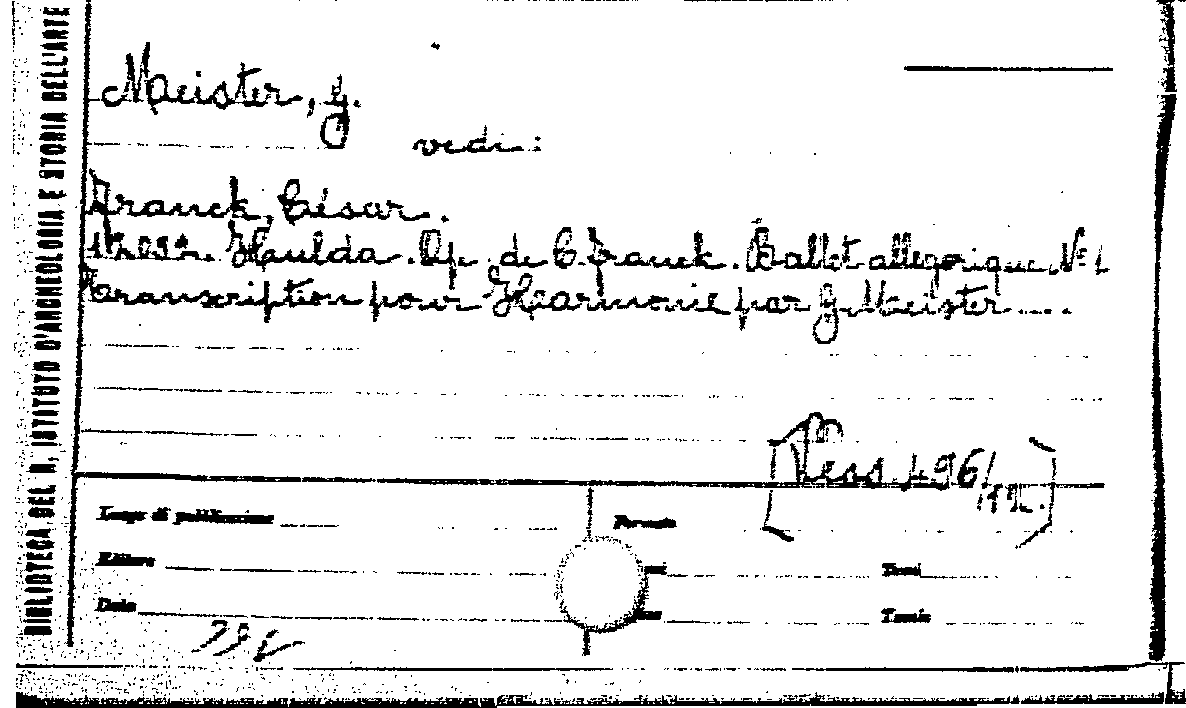 BIBLIOTECA DEL R. ISTITUTO D'ARCHEOLOGIA E STORIA DELL'ARTE
Meister, G.
vedi:
Franck, César.
Haulda. Op. de C. Franck. Ballet allegorique. Nº 1
Transcription pour Harmonie par G. Meister....
496/
Luogo di pubblicazione
Formato
Editore
Tomi
Data
Tavole